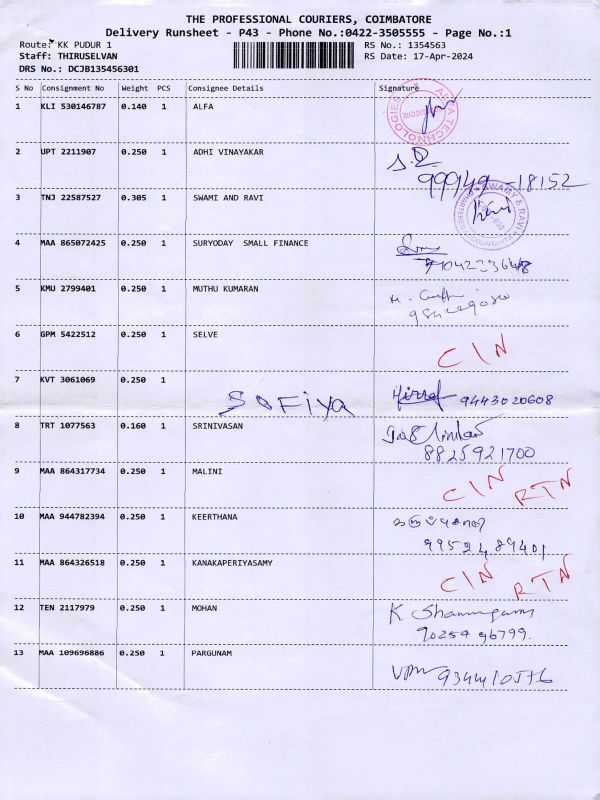 THE PROFESSIONAL COURIERS, COIMBATORE
Delivery Runsheet - P43 - Phone No.:0422-3505555 - Page No.:1
Route: KK PUDUR 1 RS No.: 1354563
Staff: THIRUSELVAN RS Date: 17-Apr-2024
DRS No.: DCJB135456301
S No Consignment No Weight PCS Consignee Details Signature
1 KLI 530146787 0.140 1 ALFA
2 UPT 2211907 0.250 1 ADHI VINAYAKAR S.D
99949-18152
3 TNJ 22587527 0.305 1 SWAMI AND RAVI
4 MAA 865072425 0.250 1 SURYODAY SMALL FINANCE
5 KMU 2799401 0.250 1 MUTHU KUMARAN
6 GPM 5422512 0.250 1 SELVE CIN
7 KVT 3061069 0.250 1 SOFiya 9443020608
8 TRT 1077563 0.160 1 SRINIVASAN
8825921700
9 MAA 864317734 0.250 1 MALINI CIN RTN
10 MAA 944782394 0.250 1 KEERTHANA
9952489401
11 MAA 864326518 0.250 1 KANAKAPERIYASAMY CIN RTN
12 TEN 2117979 0.250 1 MOHAN K Shanmugam
90254 96799.
13 MAA 109696886 0.250 1 PARGUNAM